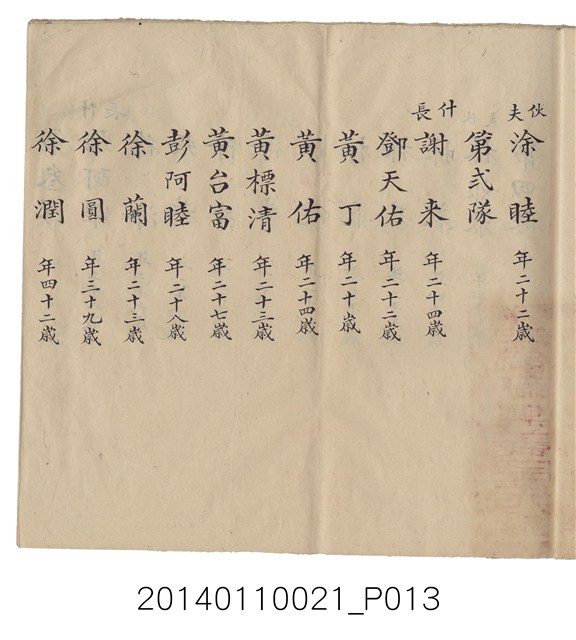 伙夫 涂睦 年二十二歲
第弍隊
什長 謝来 年二十四歲
鄧天佑 年二十二歲
黄丁 年二十歲
黄佑 年二十四歲
黄標清 年二十三歲
黄台富 年二十七歲
彭阿睦 年二十八歲
徐蘭 年二十三歲
徐圓 年三十九歲
徐潤 年四十二歲
20140110021_P013